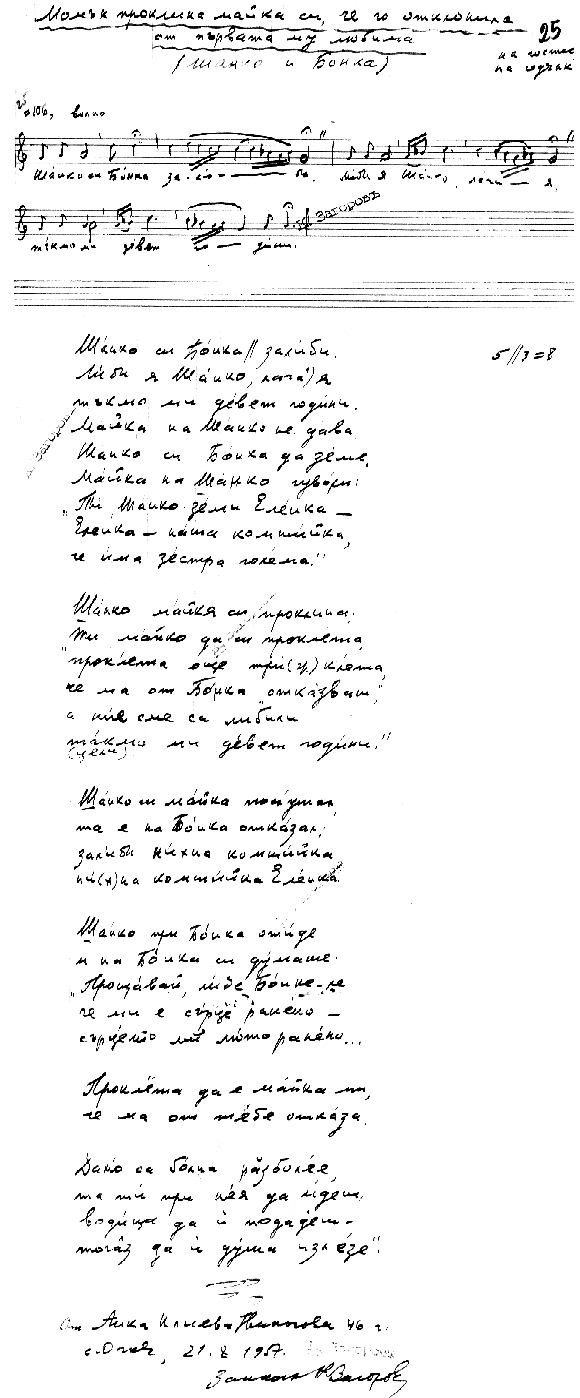 Момък проклина майка си, че го отклонила
от първата му любима
(Шанко и Бонка)
25
=106, волно
Шанко си Бонка за-лю- би. Люби я Шанко, лага- я
тъкмо ми девет го- дини.
Загоровъ
Ша́нко си Бо́нка // залю́би. 5//3=8
Лю́би я Ша́нко, лага́ я
тъкмо́ ми де́вет годи́ни.
Ма́йка на Ша́нко не дава
Шанко си Бо́нка да зе́ме,
Ма́йка на Ша́нко гово́ри:
„Ти, Ша́нко земи Еле́нка –
Еле́нка – на́ша комши́йка,
че и́ма зе́стра голе́ма."
Ша́нко ма́йкя си проклина:
Ти ма́йко да си прокле́та,
"прокле́та още три(ж) кле́та,
че ма от Бо́нка "отка́зваш",
а ни́е сме са либили
та́кмо ми де́вет годи́ни."
(цели)
Ша́нко си ма́йка послуша
та е на Бо́нка отка́зал;
залю́би ни́хна комши́йка
ни́(х)на комши́йка Еле́нка.
Ша́нко при Бо́нка оти́де
и на Бо́нка си ду́маше:
"Проща́вай, либе Бо́нке-ле
че ми е сърце́ ране́но –
сърце́то ми лю́то ране́но...
Прокле́та да е ма́йка ми,
че ма от те́бе отка́за.
Дано́ са бо́лна разболе́е,
та ти при не́я да и́деш,
води́ца да ѝ подаде́ш –
тога́з да ѝ ду́ша изле́зе".
От Анка Илиева 46 г.
21. 8 1957.
Записал Загоров